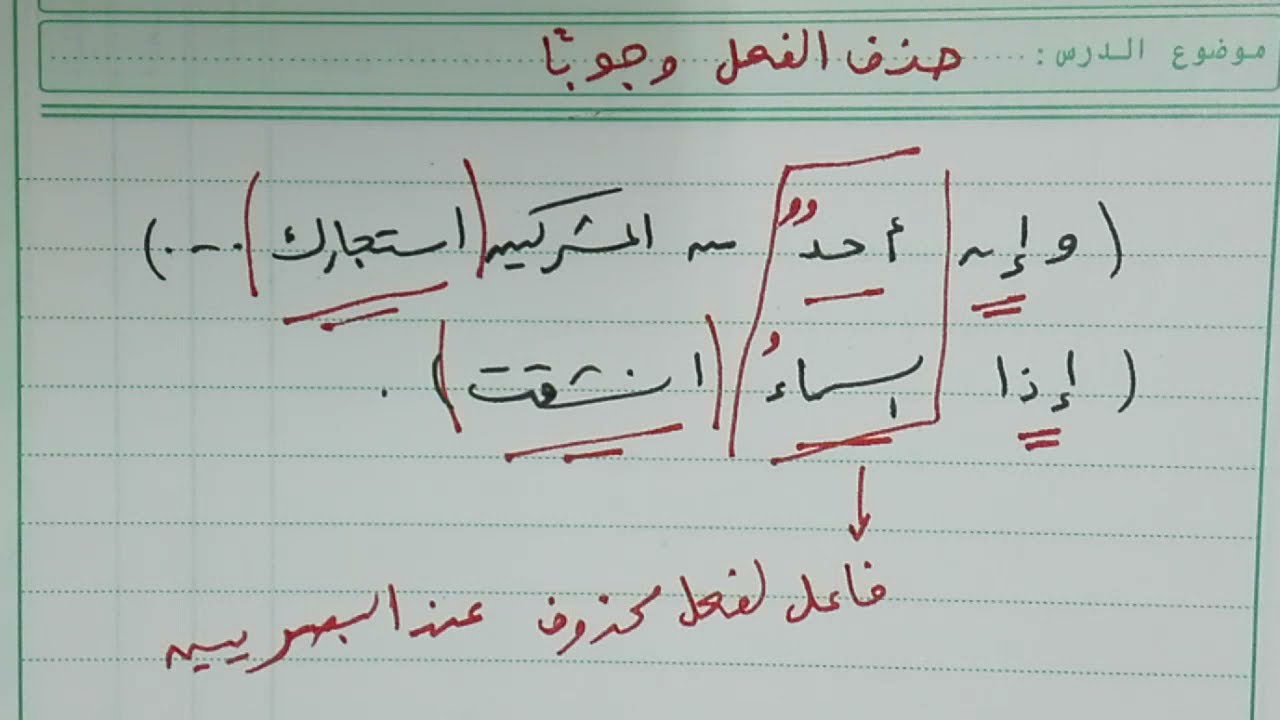 موضوع الدرس: حذف الفعل وجوبًا
( وإن أحدٌ من المشركين استجارك ...)
( إذا السماءُ انشقت ) .
فاعل لفعل محذوف عند البصريين